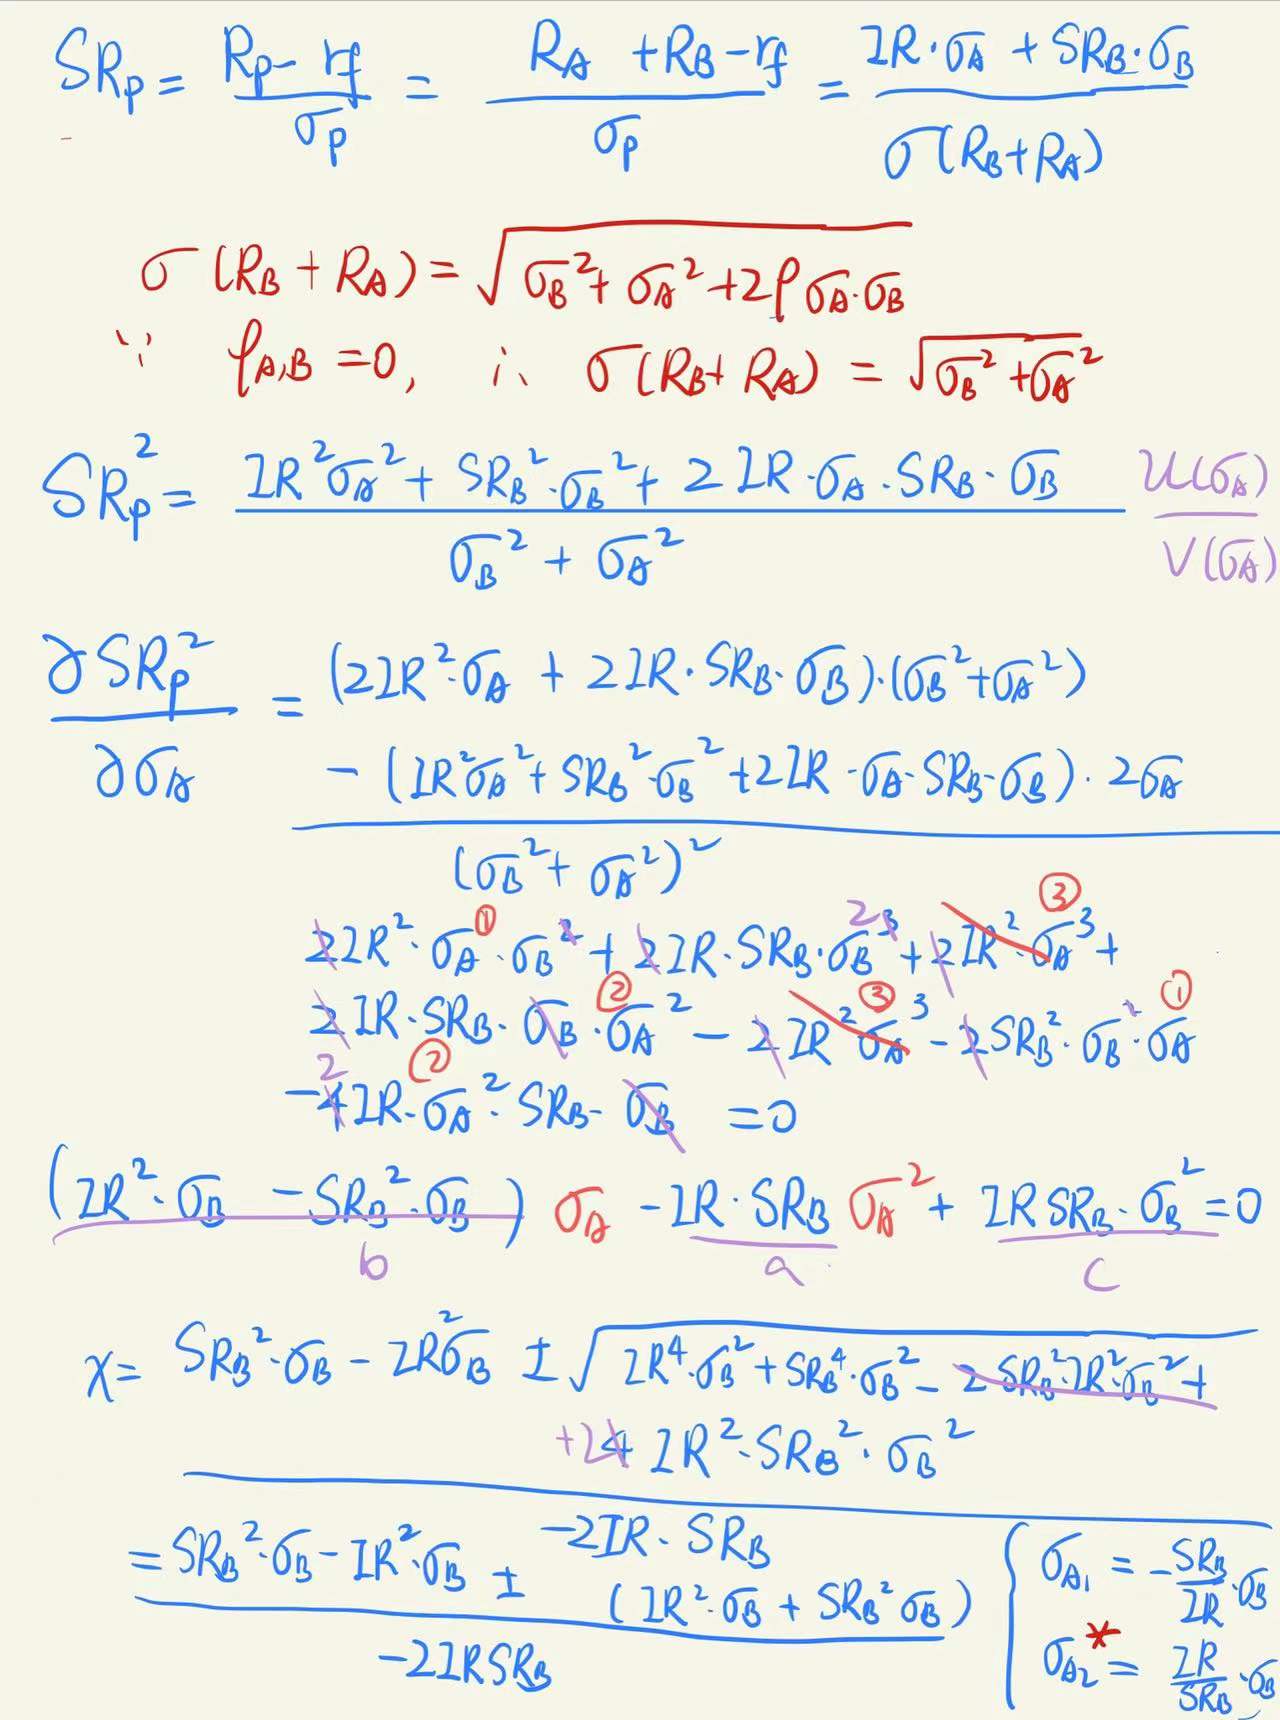 SR_P = (R_P - rf)/σ_P = (R_A + R_B - rf)/σ_P = (IR·σ_A + SR_B·σ_B)/σ(R_B+R_A)
σ(R_B + R_A) = √(σ_B² + σ_A² + 2ρσ_A·σ_B)
∵ ρ_A,B = 0, ∴ σ(R_B + R_A) = √(σ_B² + σ_A²)
SR_P² = (IR²σ_A² + SR_B²·σ_B² + 2IR·σ_A·SR_B·σ_B)/(σ_B² + σ_A²) U(σ_A)/V(σ_A)
∂SR_P²/∂σ_A = (2IR²·σ_A + 2IR·SR_B·σ_B)·(σ_B² + σ_A²)
- (IR²σ_A² + SR_B²·σ_B² + 2IR·σ_A·SR_B·σ_B)·2σ_A
(σ_B² + σ_A²)²
2IR²·σ_A①·σ_B² + 2IR·SR_B·σ_B³ 2 + 2IR²·σ_A³③ +
2IR·SR_B·σ_B·σ_A²② - 2IR²σ_A³③ - 2SR_B²·σ_B²·σ_A①
-4 2 IR·σ_A²②·SR_B·σ_B = 0
(IR²·σ_B - SR_B²·σ_B)σ_A - IR·SR_B σ_A² + IR SR_B·σ_B² = 0
b a c
x = SR_B²·σ_B - IR²σ_B ± √(IR⁴·σ_B² + SR_B⁴·σ_B² - 2SR_B²·IR²·σ_B² +
+2 4 IR²·SR_B²·σ_B²
-2IR·SR_B
= SR_B²·σ_B - IR²·σ_B ± (IR²·σ_B + SR_B²σ_B)
-2IRSR_B
{ σ_A1 = -SR_B/IR·σ_B
σ_A2* = IR/SR_B·σ_B